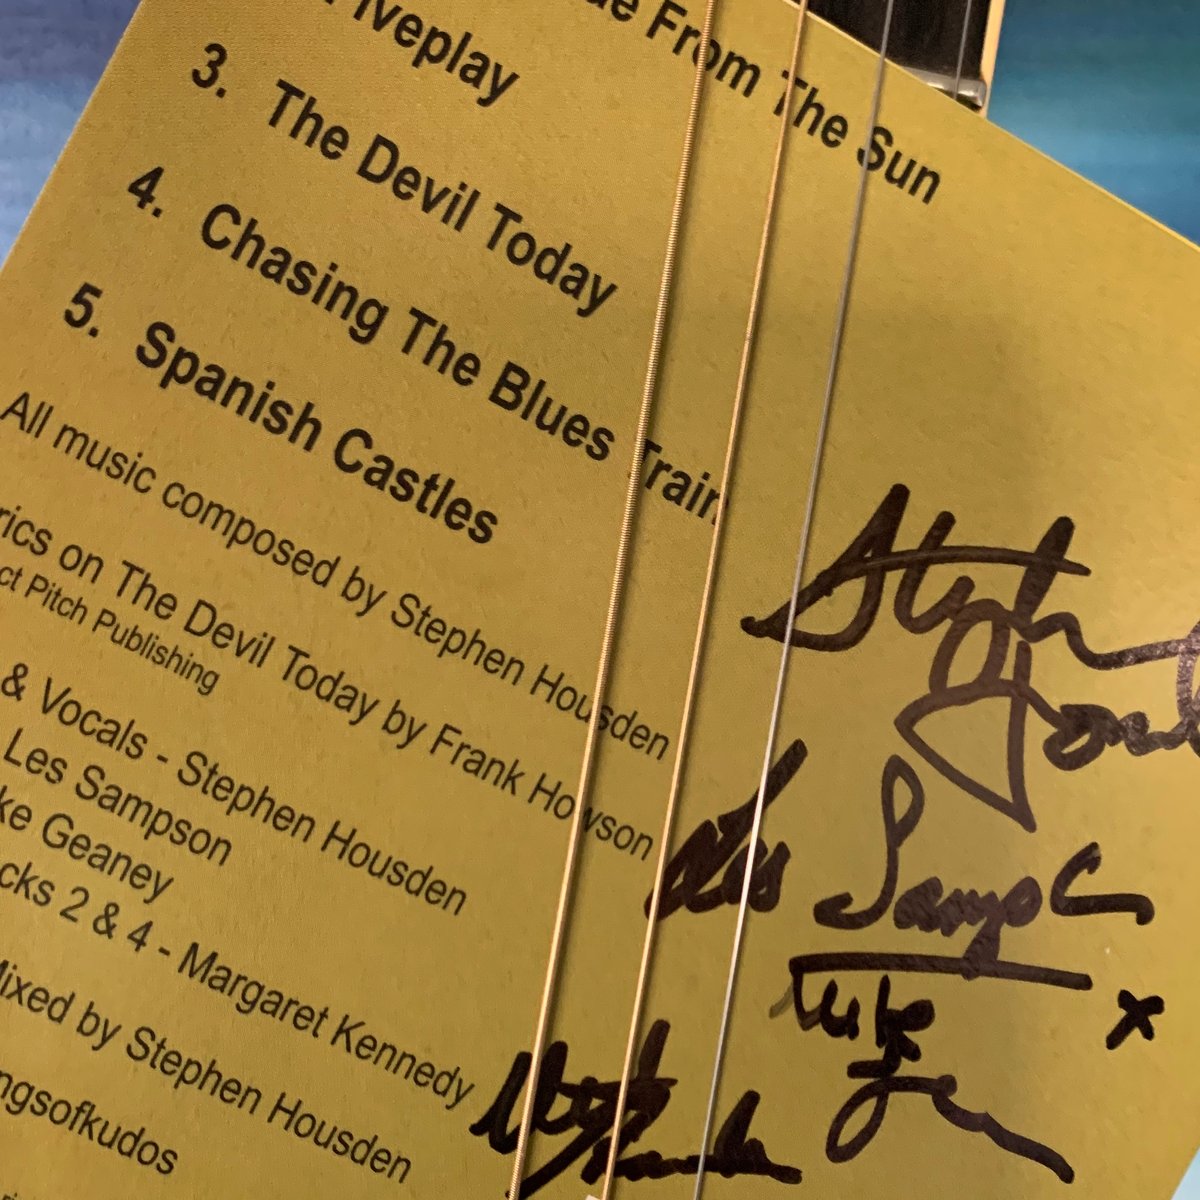 From The Sun
3. The Devil Today
4. Chasing The Blues Train
5. Spanish Castles
All music composed by Stephen Housden
on The Devil Today by Frank Howson
Pitch Publishing
& Vocals - Stephen Housden
Les Sampson
Geaney
2 & 4 - Margaret Kennedy
Mixed by Stephen Housden
Stephen
Les Samp
Luke
x